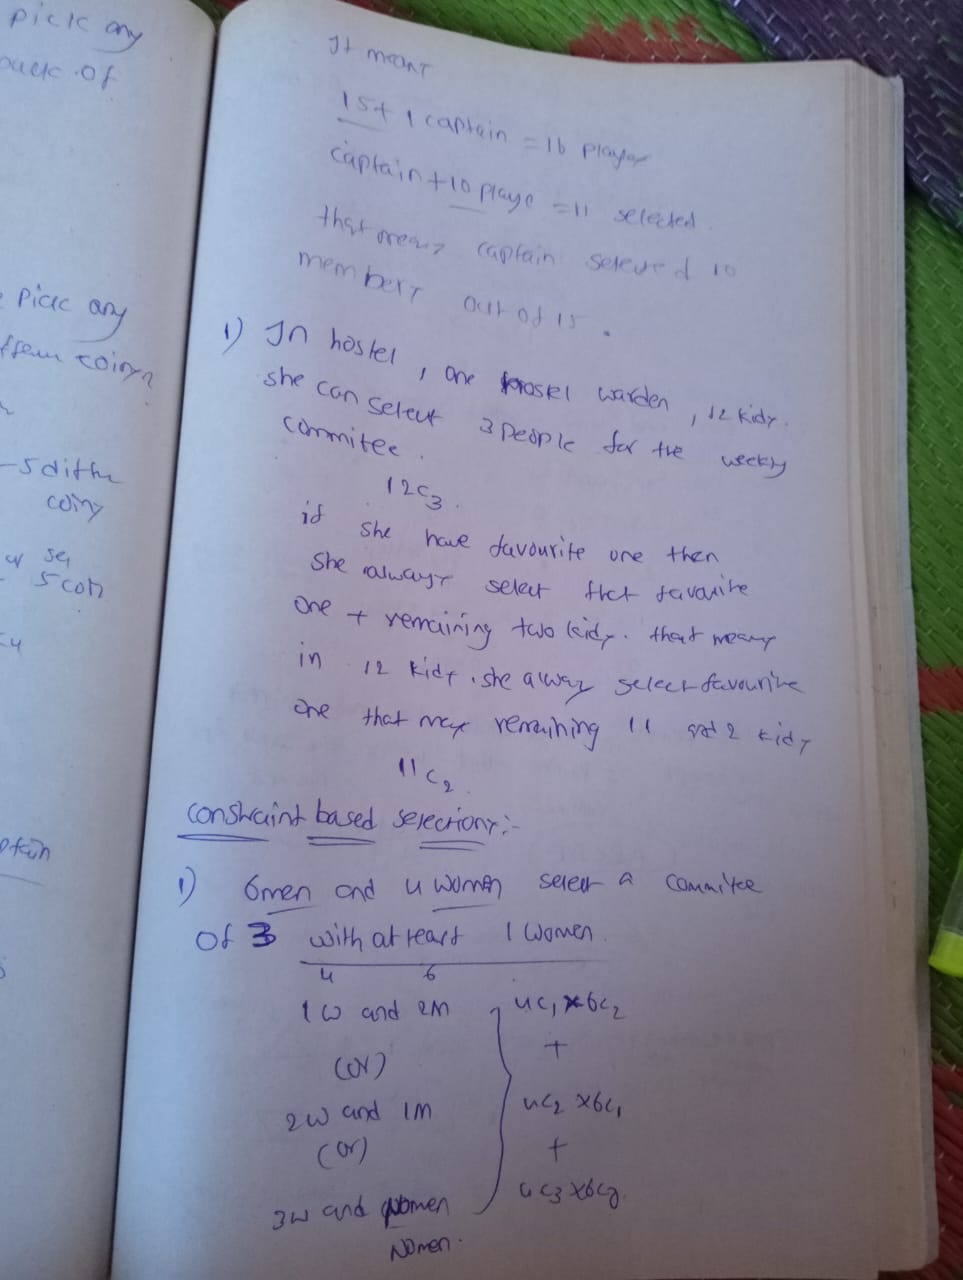 pick any
pack of
pick any
coins
5 diffe
coins
5 coin
It meant
15 + 1 captain = 16 player
captain + 10 playe = 11 selected.
that means captain selected 10
members out of 15.
1) In hostel, one hostel warden, 12 kids.
she can select 3 people for the weekly
commitee.
12c3.
if she have favourite one then
She always select that favarite
one + remaining two kids. that means
in 12 kids, she alway select favourite
one that mes remaining 11 2 kids
11c2.
constraint based selections:-
1) 6men and 4 women select a commitee
of 3 with at least 1 women.
4 6
1w and 2M 4c1 x 6c2
(or) +
2w and 1M 4c2 x 6c1
(or) +
3w and Nomen 4c3 x 6c0
Nomen.